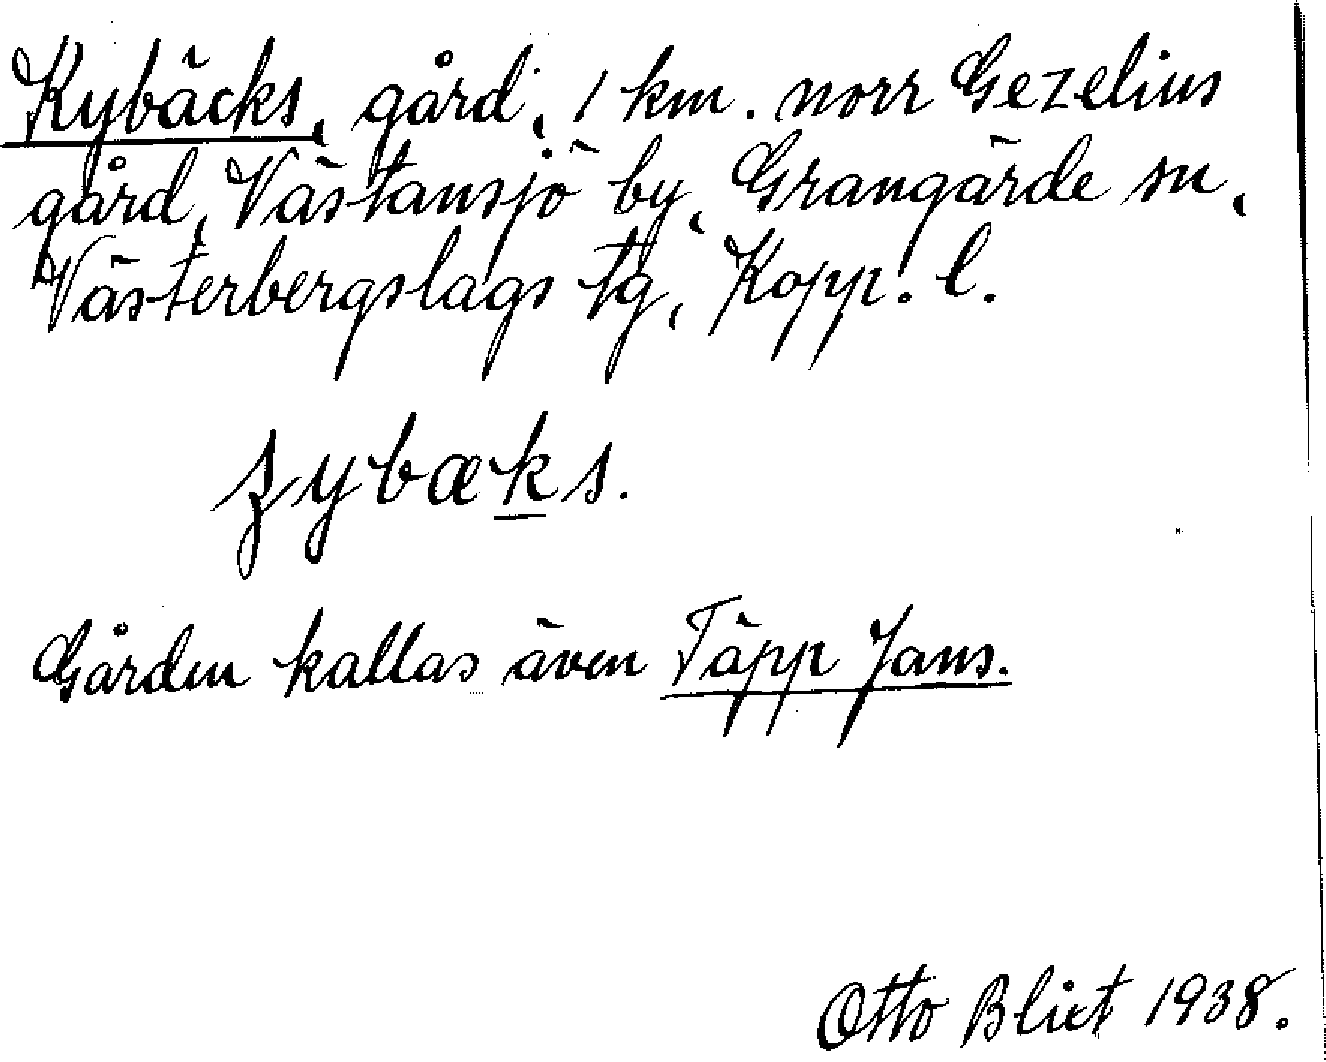 Kybäcks, gård, 1 km. norr Gezelius
gård, Västansjö by, Grangärde sn,
Västerbergslags tg, Kopp. l.
ʒybæks.
Gården kallas även Täpp Jans.
Otto Blixt 1938.